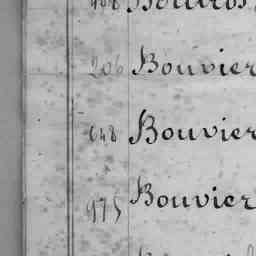 206 Bouvier
648 Bouvier
975 Bouvier